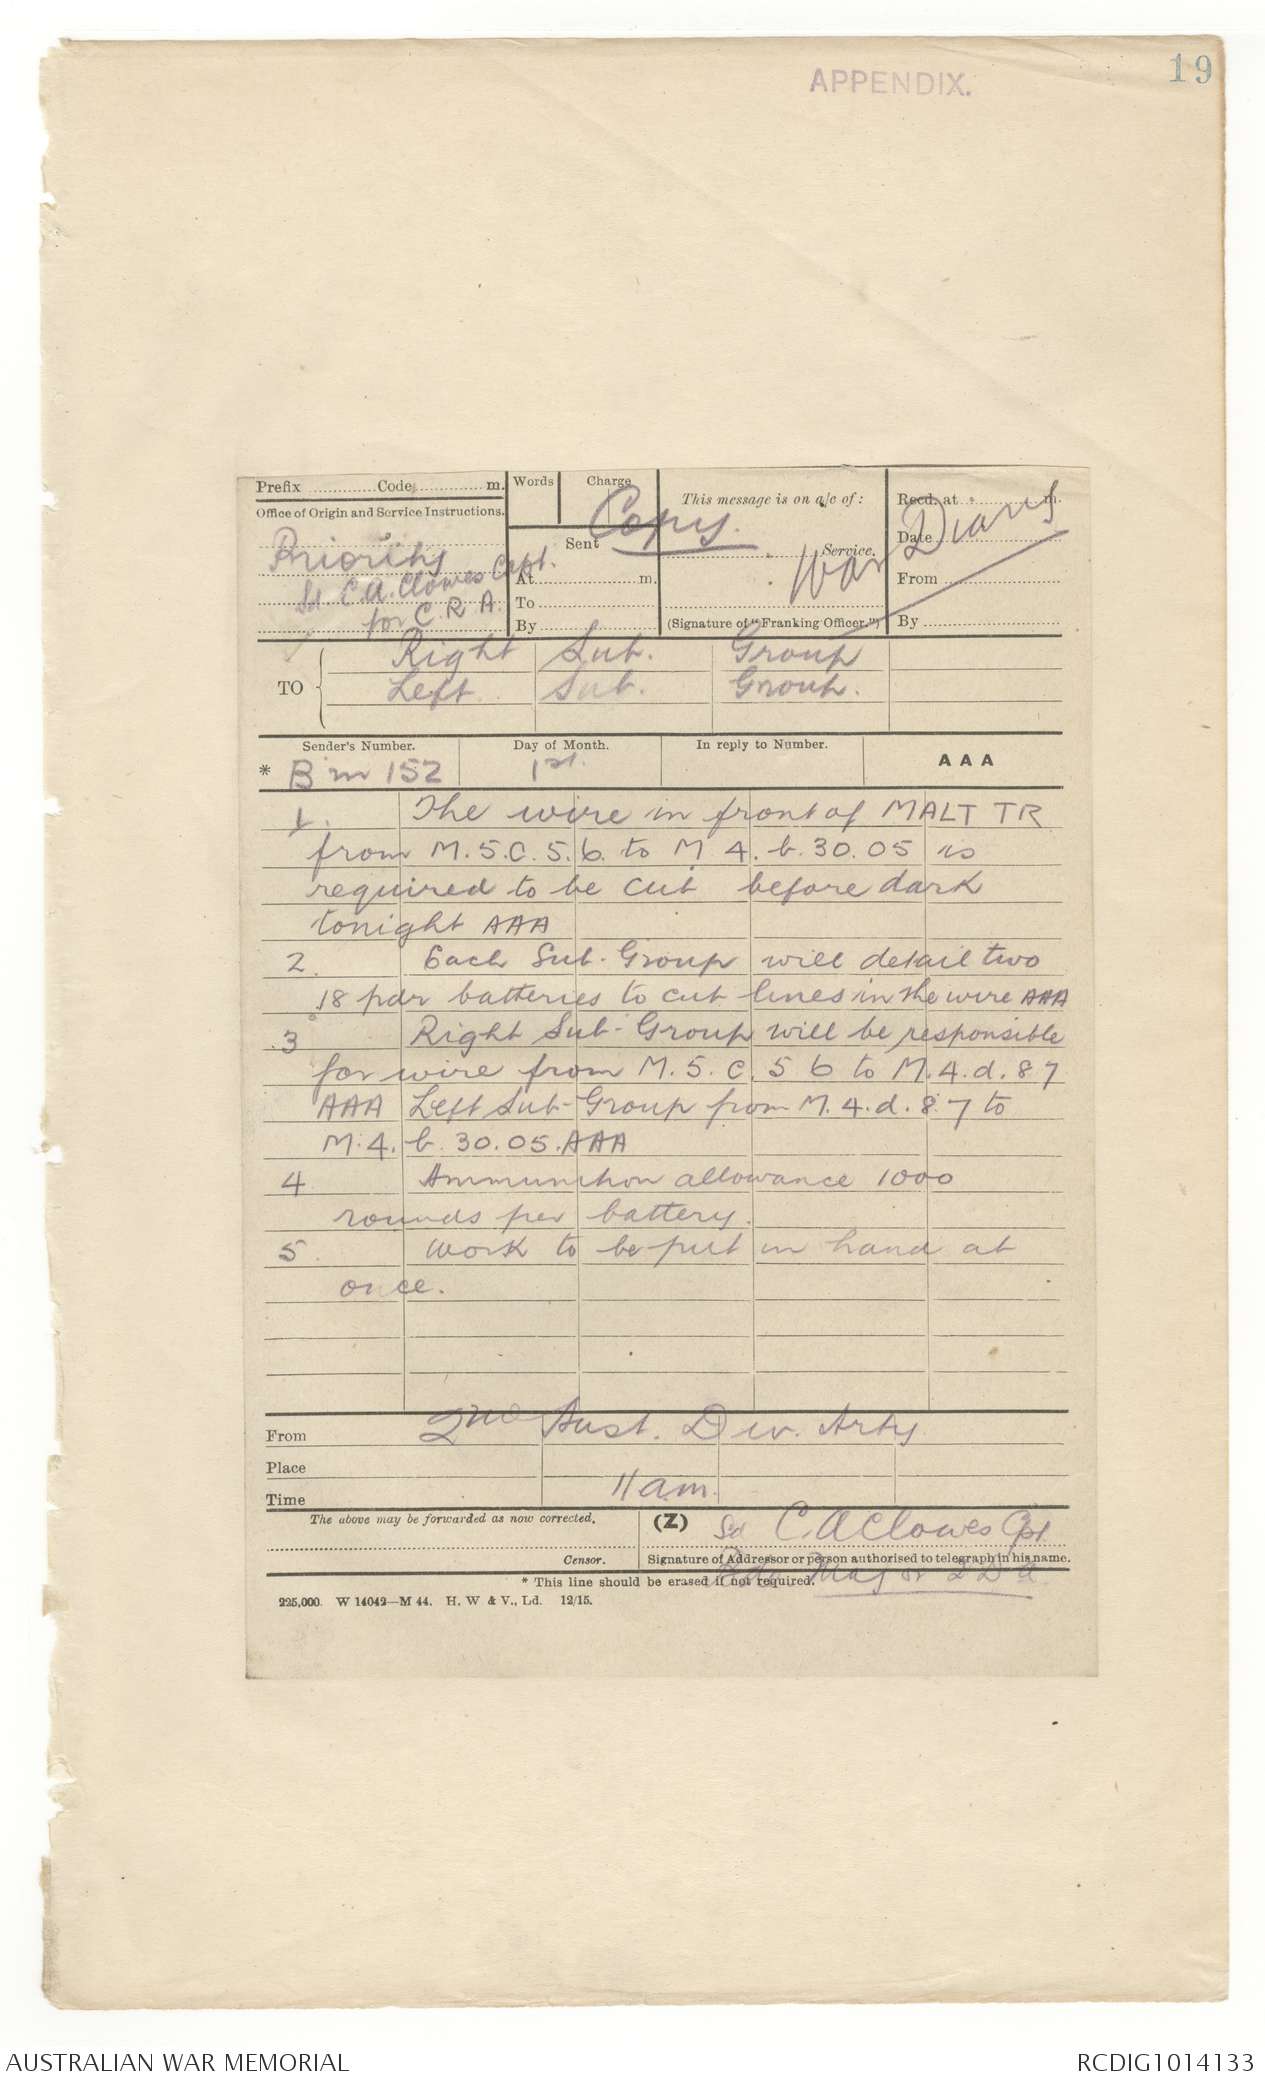 APPENDIX.
19
Prefix ............ Code ............ m.
Words
Charge
This message is on a/c of :
Recd. at ............ m.
Office of Origin and Service Instructions.
Copy.
Sent
Service.
Date
War Diary
Priority
Sd. C.A. Clowes Capt.
for C.R.A.
At ............ m.
To
By
(Signature of "Franking Officer.")
From
By
TO
Right Sub. Group
Left Sub. Group.
Sender's Number.
Day of Month.
In reply to Number.
AAA
* Bm 152
1st.
1. The wire in front of MALT TR
from M.5.C.5.6. to M 4.b.30.05 is
required to be cut before dark
tonight AAA
2. Each Sub-Group will detail two
18 pdr batteries to cut lines in the wire AAA
3 Right Sub-Group will be responsible
for wire from M.5.C.5 6 to M.4.d.8.7
AAA Left Sub-Group from M.4.d.8.7 to
M.4.b.30.05.AAA
4 Ammunition allowance 1000
rounds per battery.
5. Work to be put in hand at
once.
From
2nd Aust. Div. Arty
Place
Time
11 am.
The above may be forwarded as now corrected.
(Z)
Sd C.A Clowes Cpt
Censor.
Signature of Addressor or person authorised to telegraph in his name.
Bde Major 2 D A
* This line should be erased if not required.
225,000. W 14042—M 44. H. W & V., Ld. 12/15.
AUSTRALIAN WAR MEMORIAL
RCDIG1014133